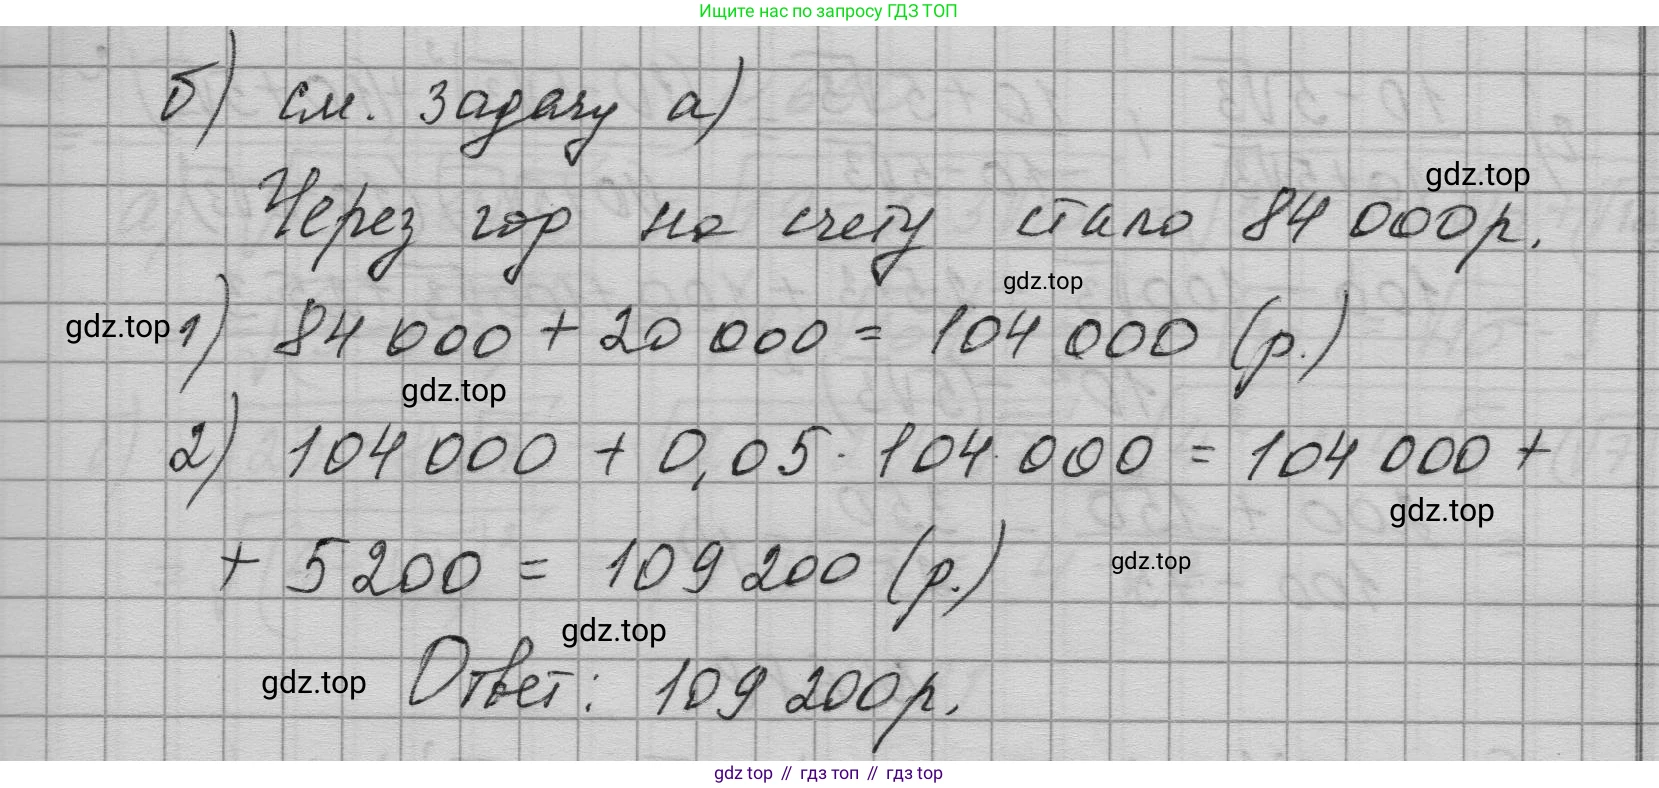 Ищите нас по запросу ГДЗ ТОП
б) см. задачу а)
gdz.top
Через год на счету стало 84 000р.
gdz.top
gdz.top 1) 84 000 + 20 000 = 104 000 (р.)
gdz.top
2) 104 000 + 0,05 · 104 000 = 104 000 +
gdz.top
+ 5 200 = 109 200 (р.)
gdz.top
gdz.top
gdz.top Ответ: 109 200р.
gdz top // гдз топ // gdz top